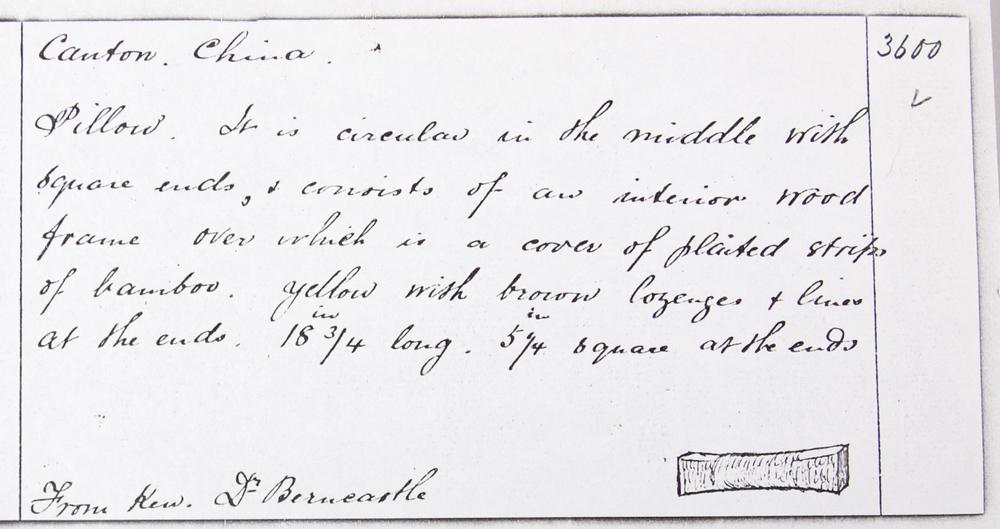 Canton. China.
3600
Pillow. It is circular in the middle with
square ends, & consists of an interior wood
frame over which is a cover of plaited strips
of bamboo. Yellow with brown lozenges & lines
at the ends. 18 3/4 in long. 5 1/4 in square at the ends
From Kew. Dr Berncastle